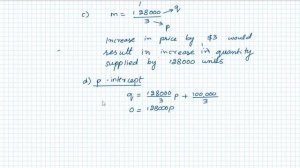 c) m = 128000 → q
3 → p
Increase in price by $3 would
result in increase in quantity
supplied by 128000 units
d) p-intercept
q = 128000/3 p + 100,000/3
0 = 128000p